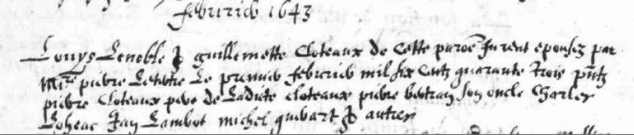 febvrier 1643
Louys Lenoble & guillemette Cloteaux de cette paroe furent epousez par
Mire pierre Letertre Le premier febvrier mil six Centz quarante trois pntz
pierre Cloteaux pere de Ladicte Cloteaux pierre bertran son oncle Charles
Loheac Jan Lambot michel guibart & autres